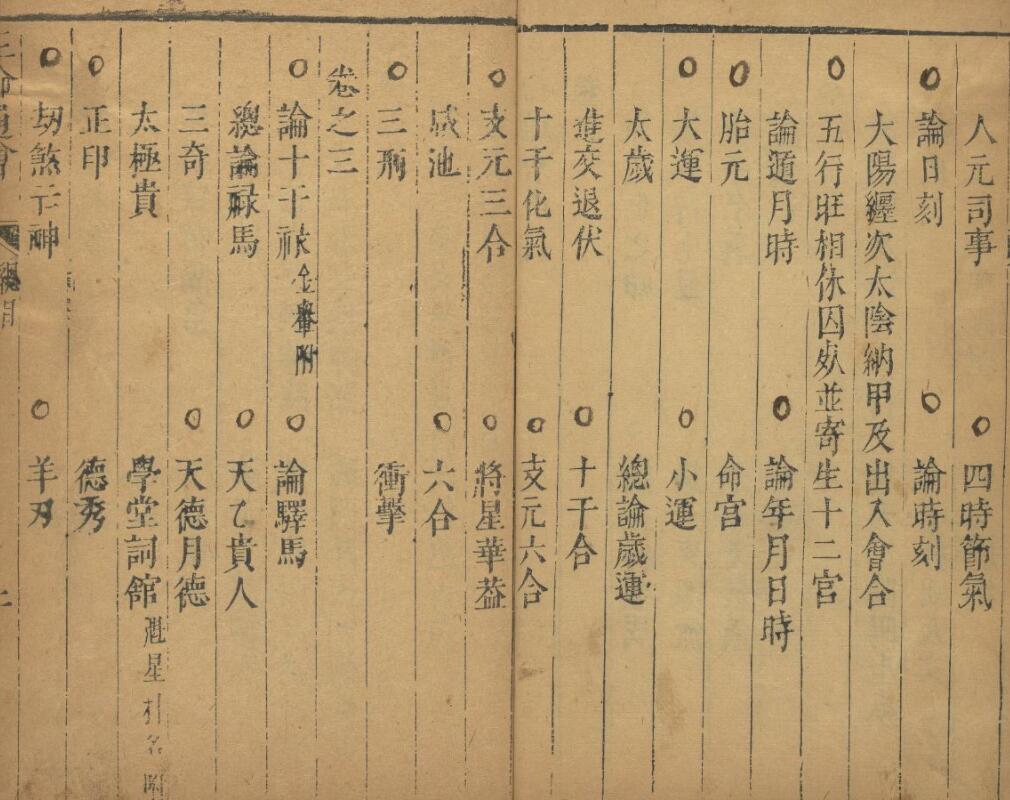 人元司事　四時節氣
論日刻　論時刻
太陽纏次太陰納甲及出入會合
五行旺相休囚死並寄生十二宮
論遁月時　論年月日時
胎元　命宮
大運　小運
太歲　總論歲運
進交退伏　十干合
十干化氣　支元六合
支元三合　將星華葢
咸池　六合
三刑　衝擊
卷之三
論十干祿金轝附　論驛馬
總論祿馬　天乙貴人
三奇　天德月德
太極貴　學堂詞館魁星
正印　德秀
刼煞亡神　羊刃